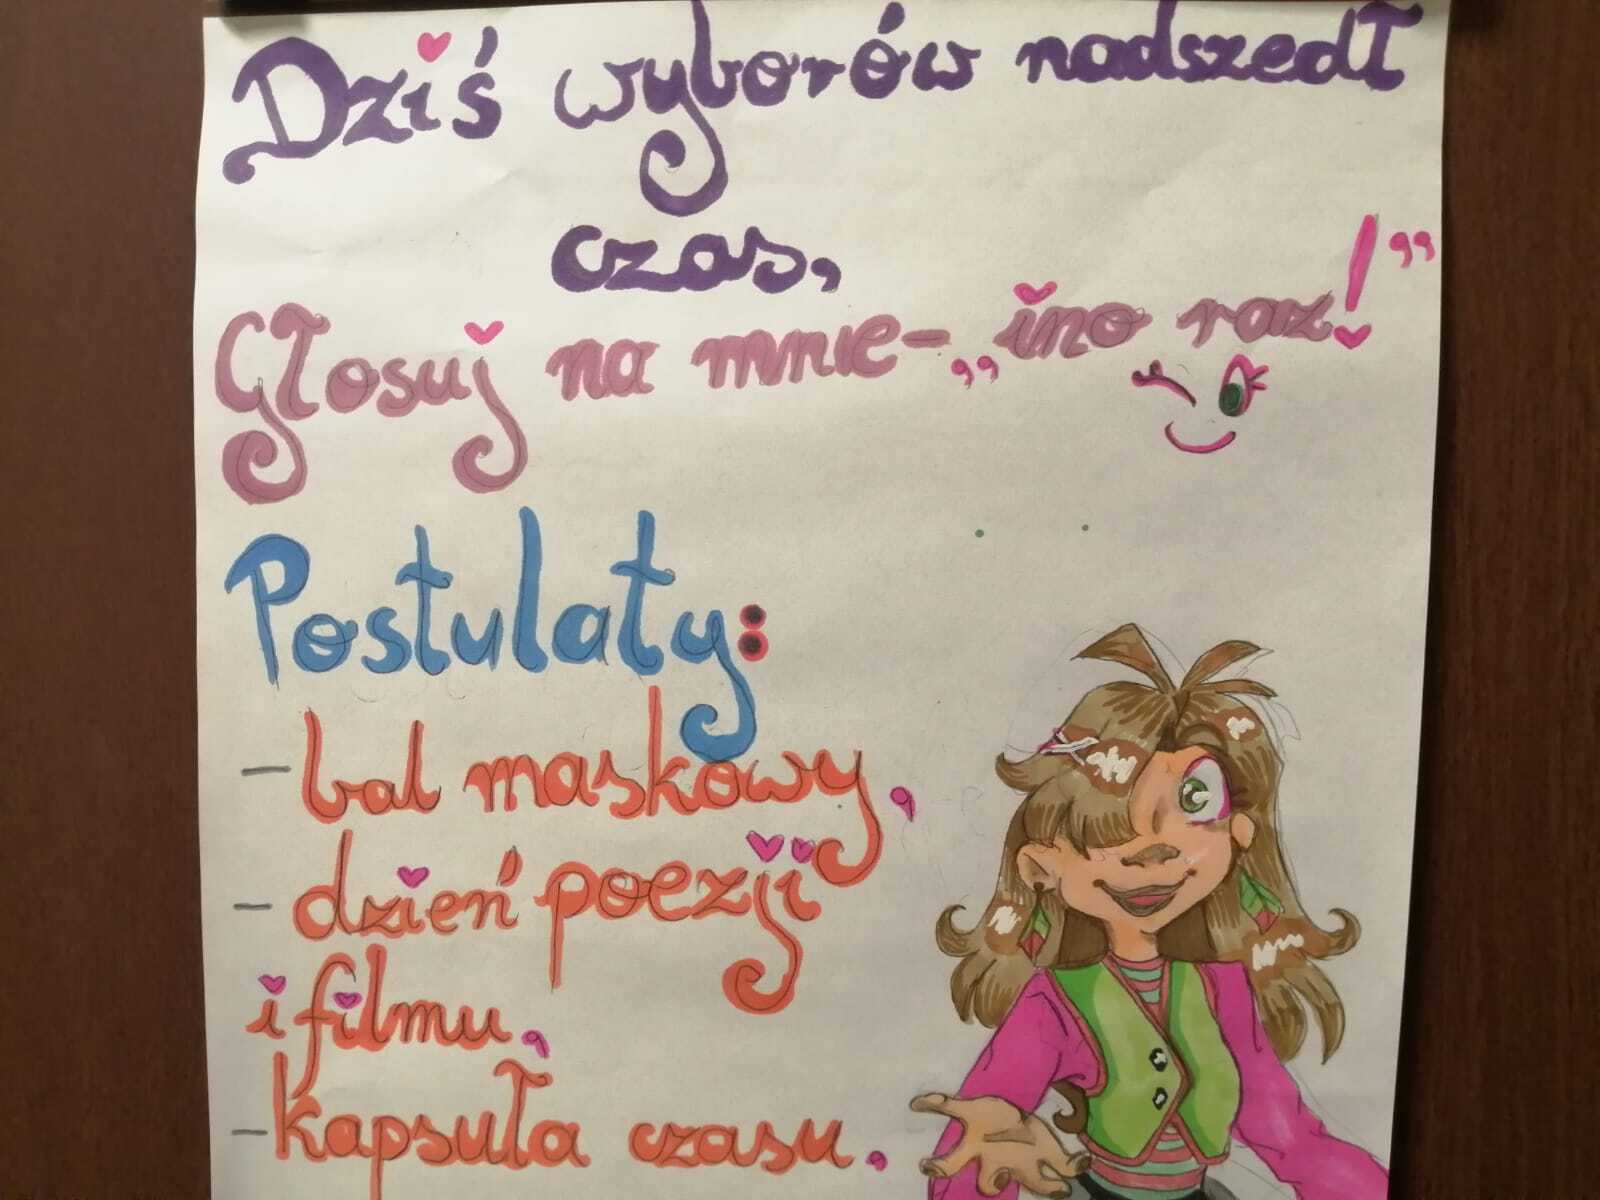 Dziś wyborów nadszedł
czas,
Głosuj na mnie- „ino raz!”
Postulaty:
- bal maskowy,
- dzień poezji
i filmu,
- kapsuła czasu,